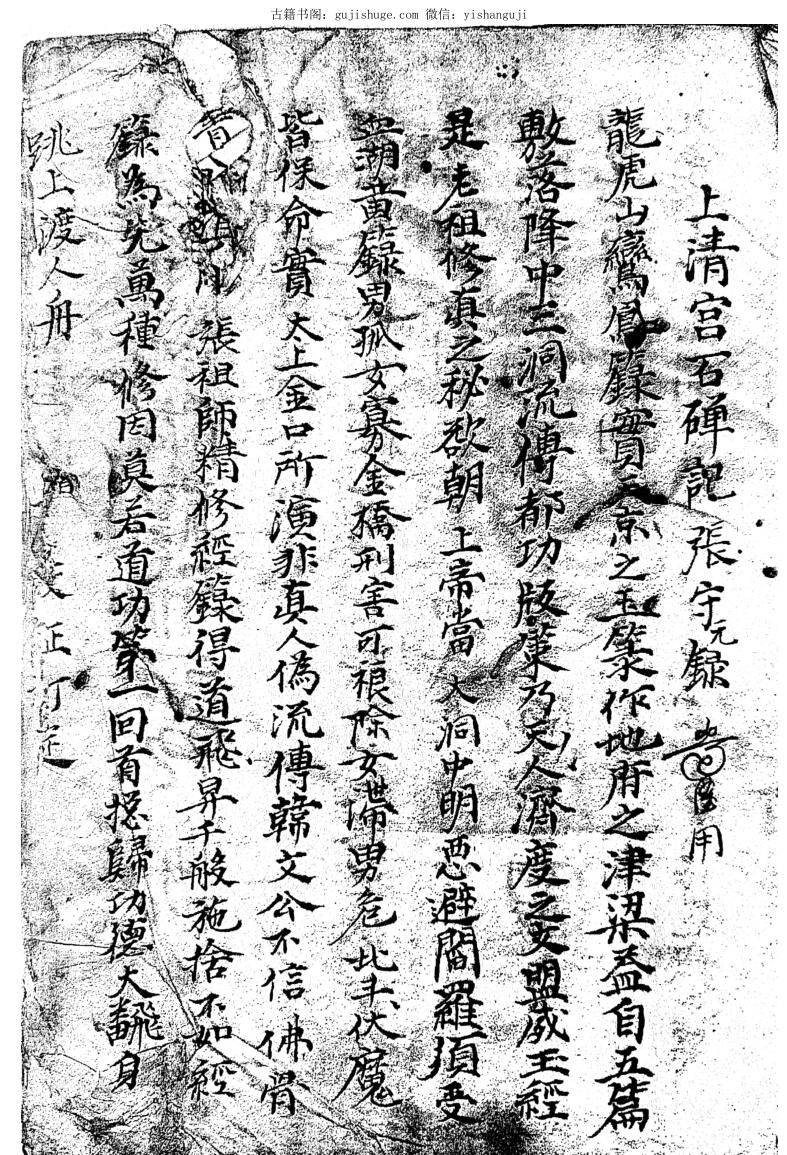 古籍书阁：gujishuge.com 微信：yishanguji
上清宫石碑記 張守元錄 用
龍虎山鸞鳳籙實天京之玉籙作地府之津梁盖自五篇
敷落降中三洞流傳都功版籙乃天人濟度之文盟威玉經
是老祖修真之秘欲朝上帝當大洞中明惡避閻羅須受
血湖黃籙男孤女寡金橋刑害可禳除女滯男危北斗伏魔
皆保命實太上金口所演非真人偽流傳韓文公不信佛骨
張祖師精修經籙得道飛昇千般施捨不如經
籙為先萬種修因莫若道功第一回首捴歸功德大翻身
跳上渡人舟